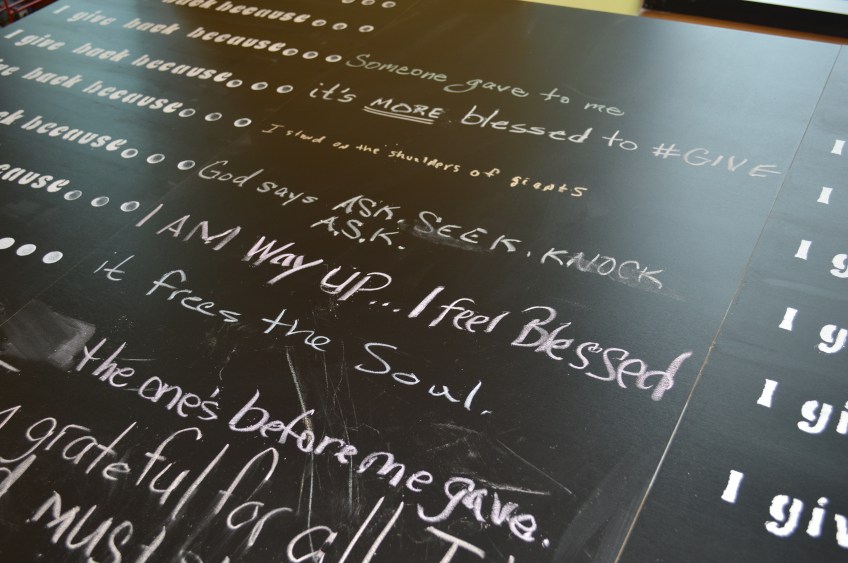 I give back because... Someone gave to me
I give back because... it's MORE blessed to #GIVE
back because... I stand on the shoulders of giants
because... God says ASK. SEEK. KNOCK
A.S.K.
I AM Way UP... I feel Blessed
it frees the Soul.
the one's before me gave.
grateful for all I
must
I
I
I g
I g
I gi
I giv